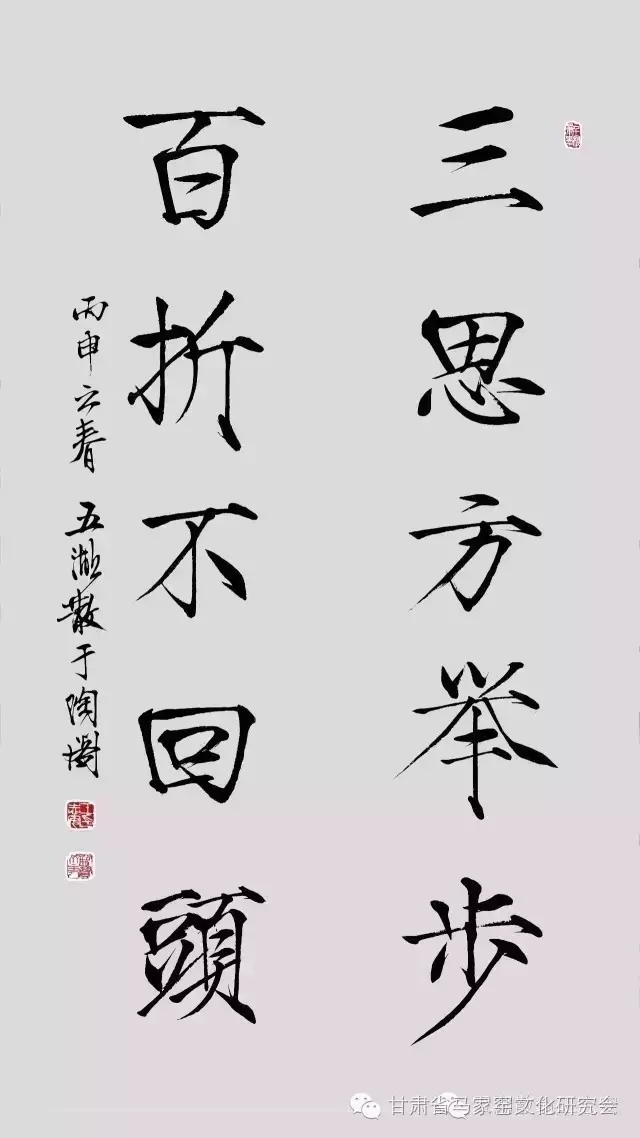 三思方举步
百折不回頭
丙申立春 五湖散于陶
甘肃省马家窑文化研究会